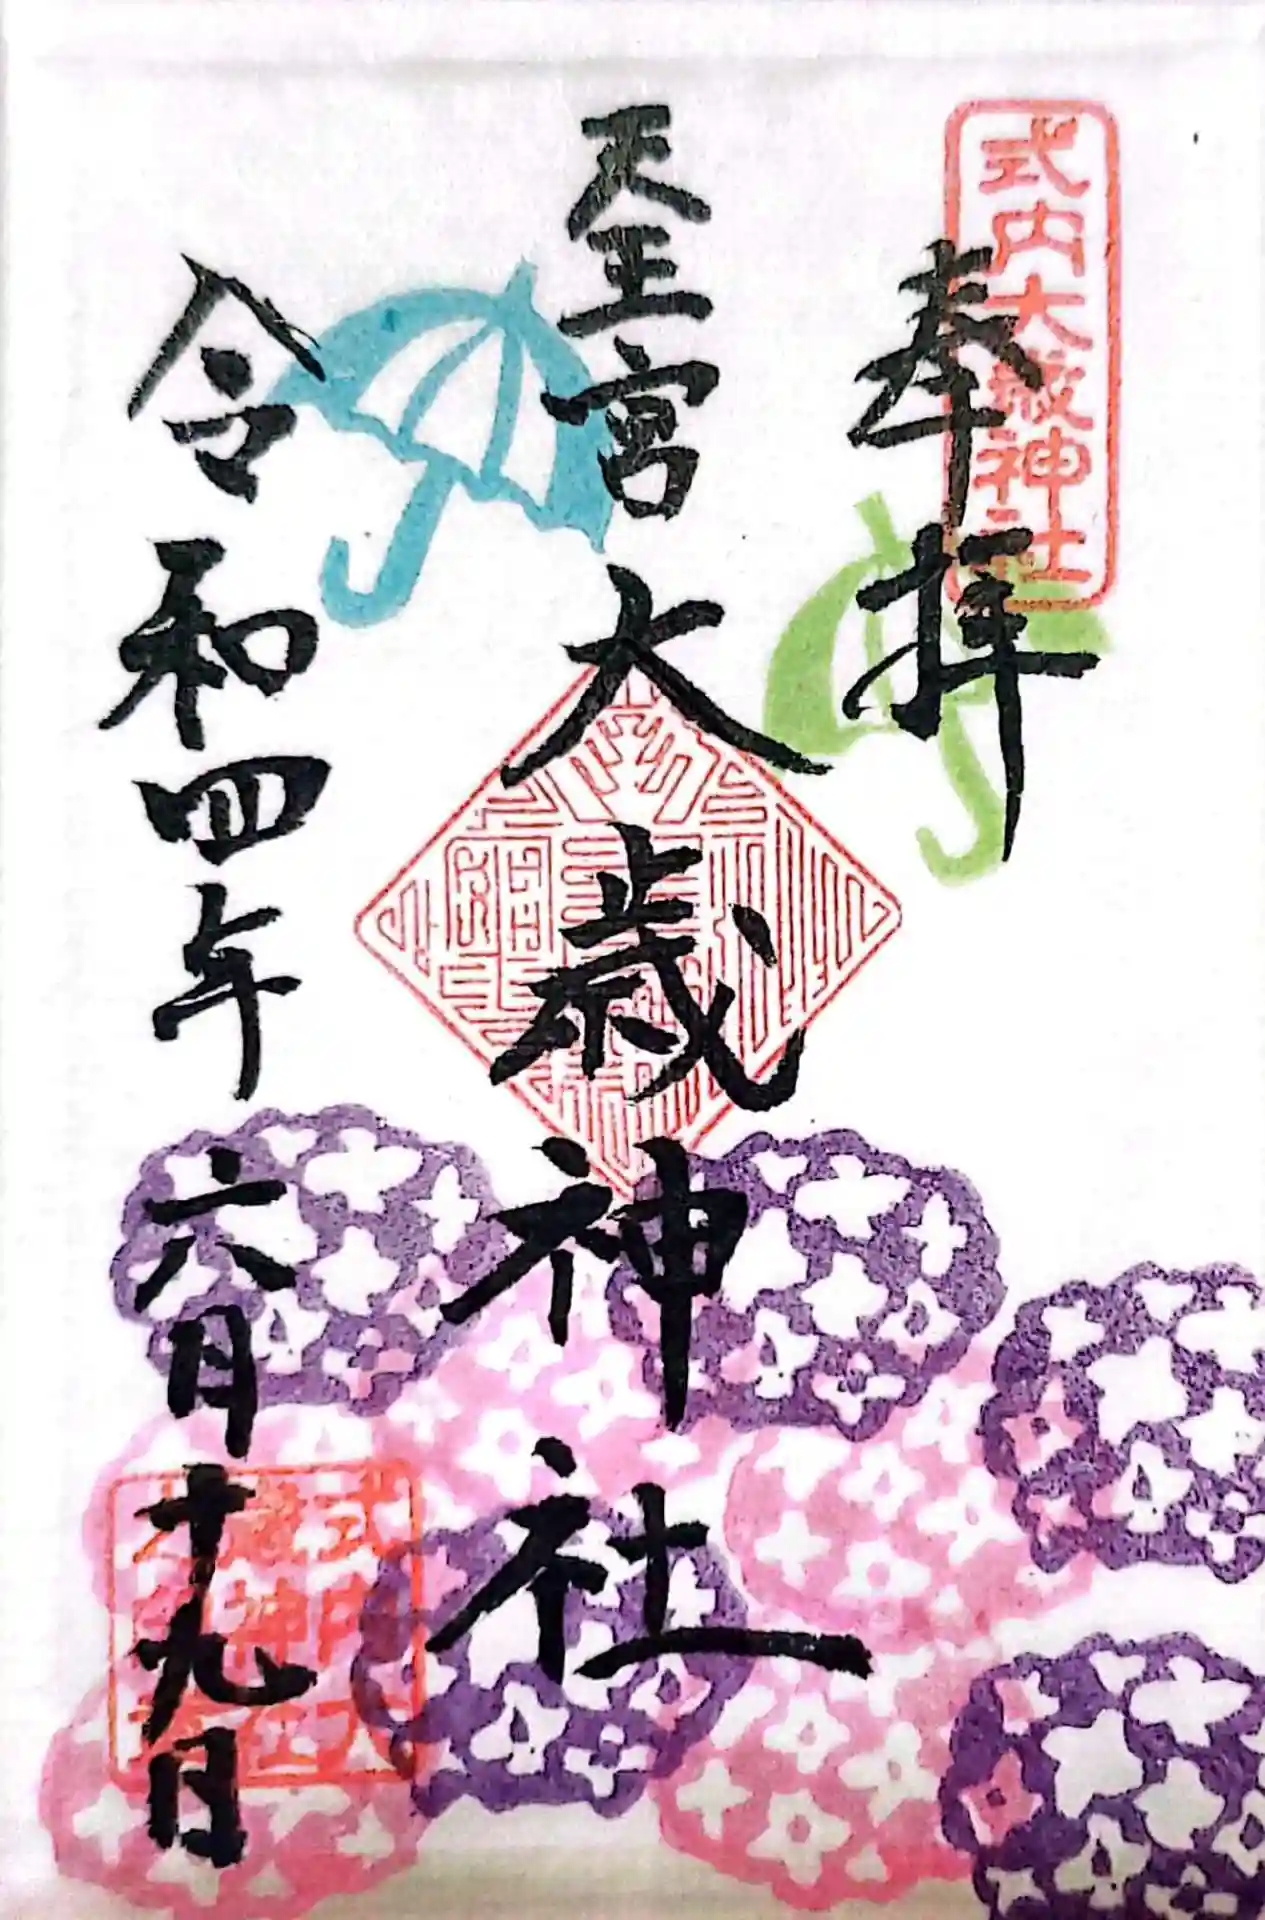 式内大歳神社
奉拝
天王宮大歳神社
令和四年六月十九日
式内大
歳神社